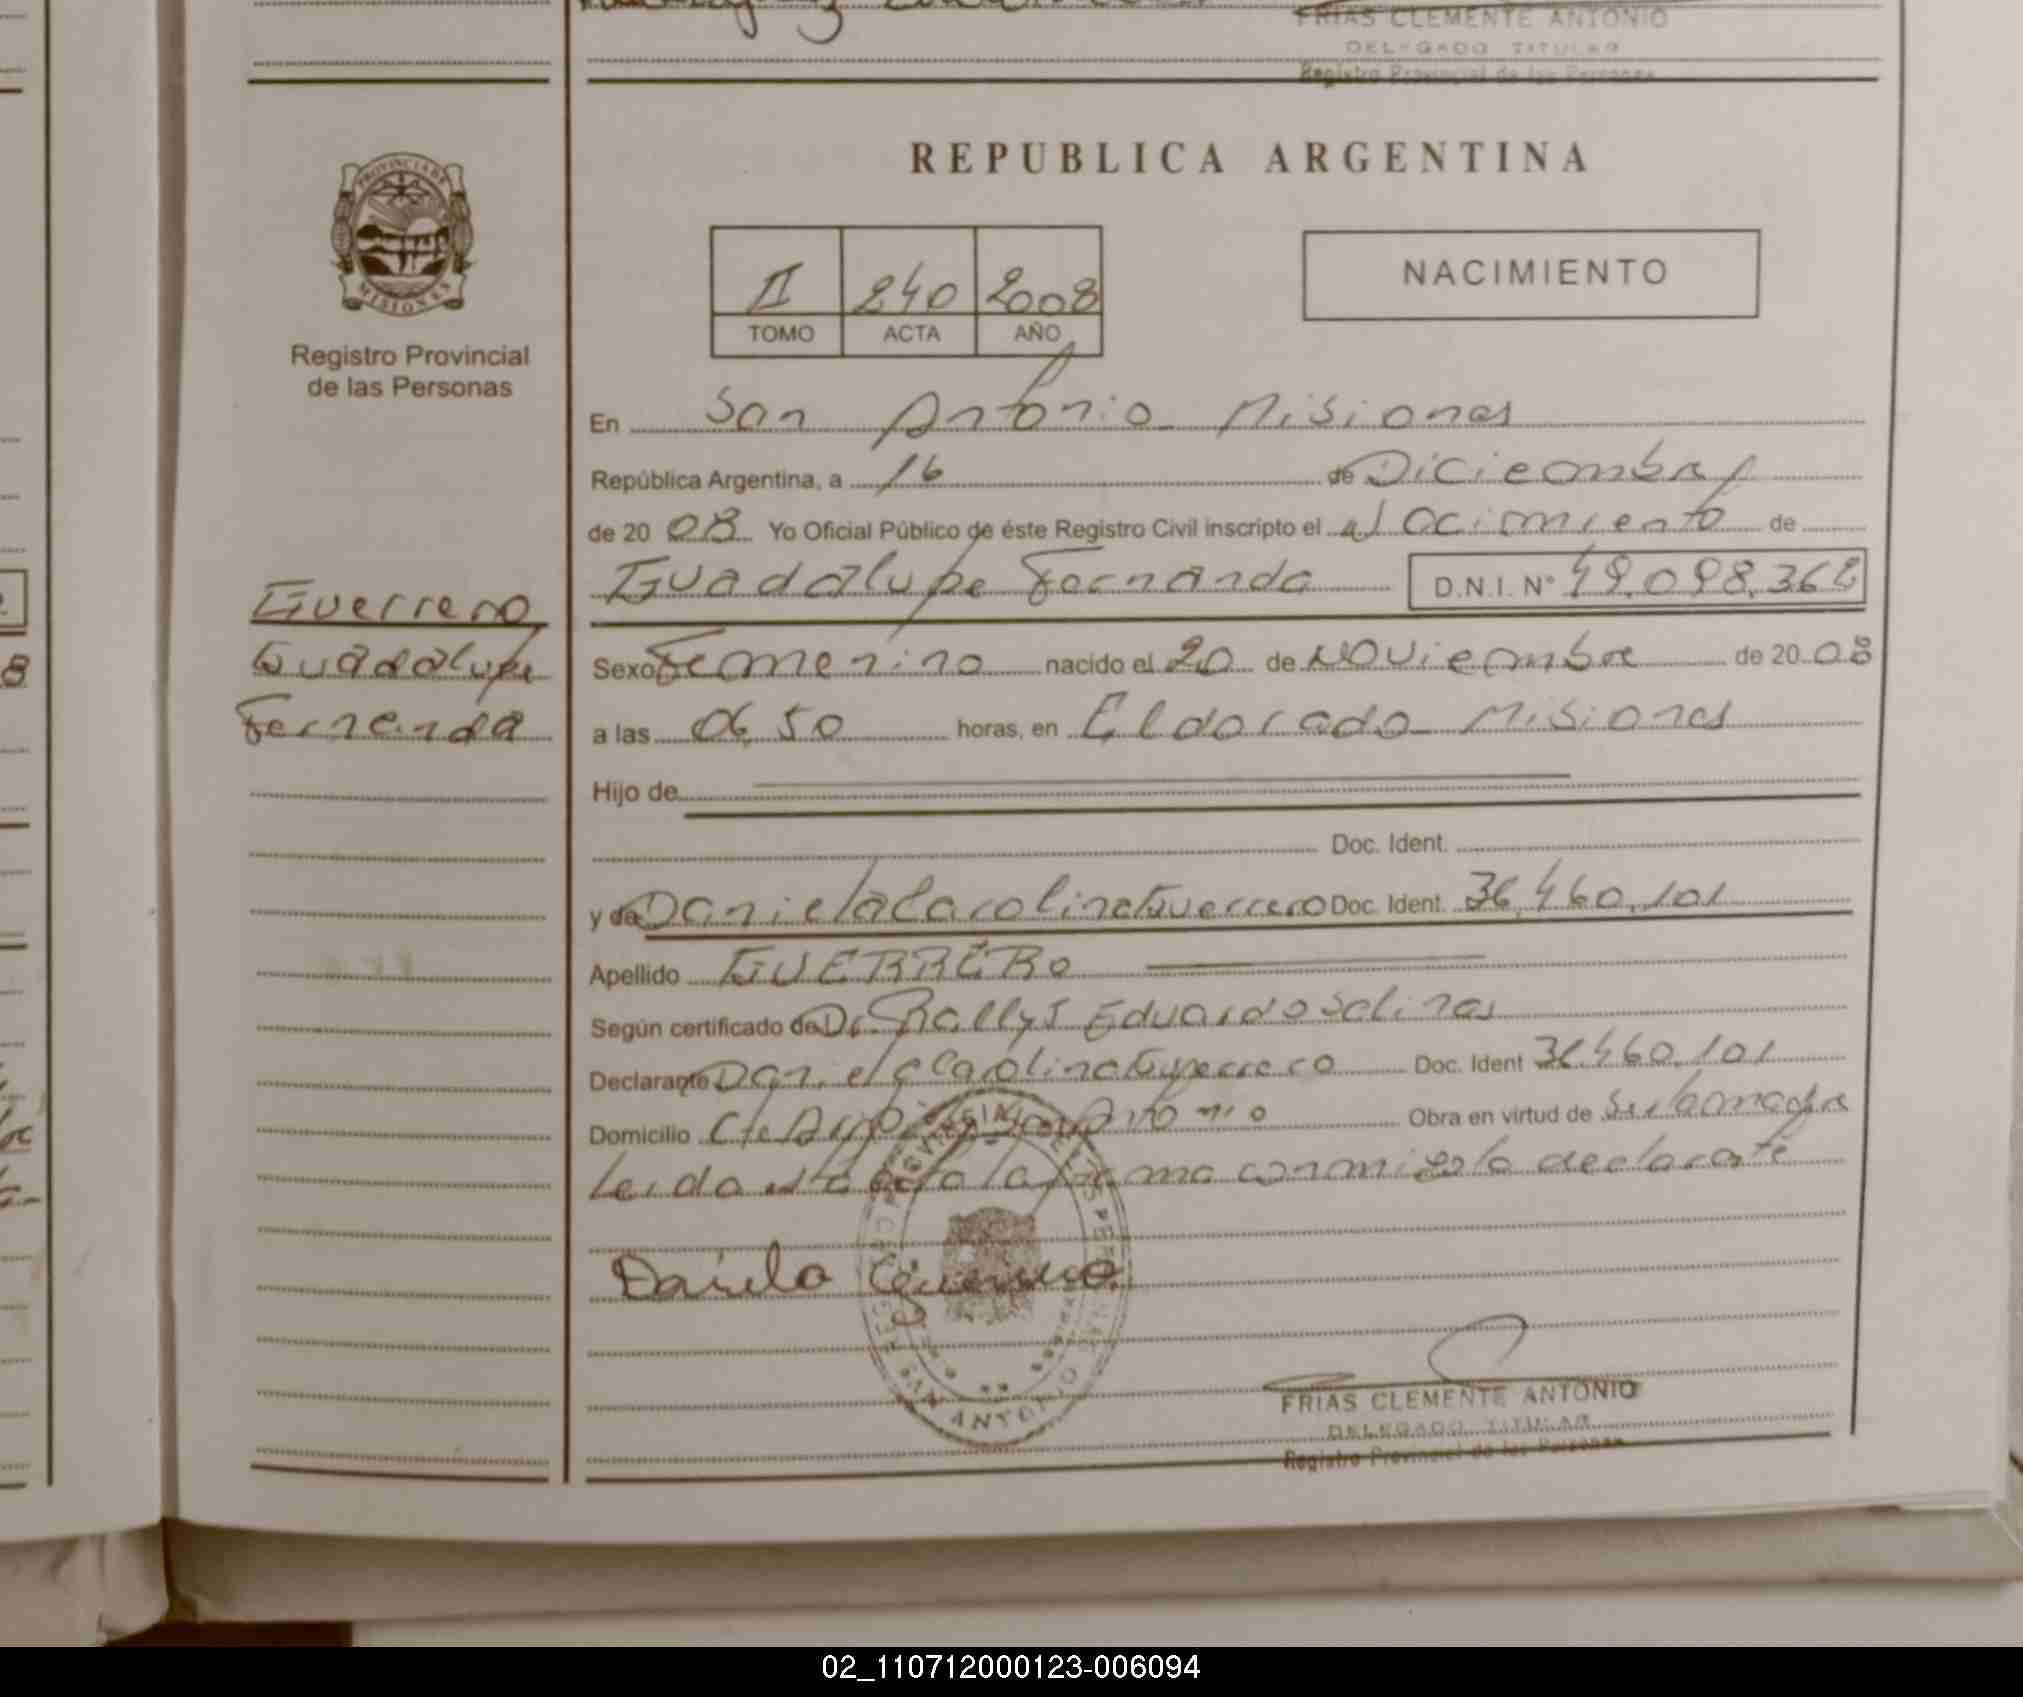 FRIAS CLEMENTE ANTONIO
DELEGADO TITULAR
Registro Provincial de las Personas
REPUBLICA ARGENTINA
PROVINCIA DE MISIONES
Registro Provincial
de las Personas
II 240 2008
TOMO ACTA AÑO
NACIMIENTO
En San Antonio Misiones
República Argentina, a 16 de Diciembre
de 20 08 Yo Oficial Público de éste Registro Civil inscripto el nacimiento de
Guadalupe Fernanda D.N.I. N° 49.098.362
Guerrero
Guadalupe
Fernanda
Sexo Femenino nacido el 20 de Noviembre de 20 08
a las 06,50 horas, en Eldorado Misiones
Hijo de
Doc. Ident.
y de Daniela Carolina Guerrero Doc. Ident. 36.460.101
Apellido GUERRERO
Según certificado de Dr. Rallys Eduardo Salinas
Declarante Daniela Carolina Guerrero Doc. Ident 36.460.101
Domicilio San Antonio Obra en virtud de Ser la madre
Leida el acta la firma conmigo la declarante
Daniela Guerrero
SAN ANTONIO
FRIAS CLEMENTE ANTONIO
DELEGADO TITULAR
Registro Provincial de las Personas
02_110712000123-006094